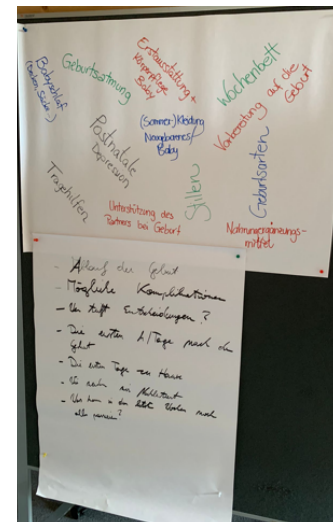 Babyschlaf
Geburtsatmung
Erstausstattung +
Körperpflege
Baby
Wochenbett
Vorbereitung auf die
Geburt
(Sommer-)Kleidung
Neugeborenes
Baby
Postnatale
Depression
Geburtsarten
Stillen
Tragehilfen
Unterstützung des
Partners bei Geburt
Nahrungsergänzungs-
mittel
- Ablauf der Geburt
- Mögliche Komplikationen
- Wer trifft Entscheidungen?
- Die ersten Tage nach der
Geburt
- Die ersten Tage zu Hause
- Was kann in den letzten Wochen noch
alles passieren?